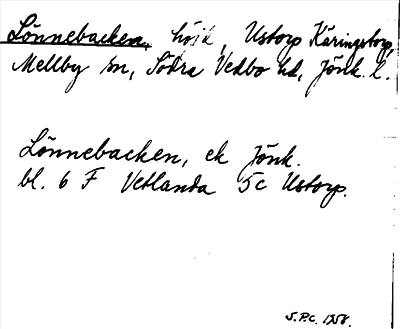 Lönnebacken, höjd, Ustorp Käringstorp,
Mellby sn, Södra Vedbo hd, Jönk. l.
Lönnebacken, ek Jönk.
bl. 6 F Vetlanda 5c Ustorp.
S.P.C. 1958.